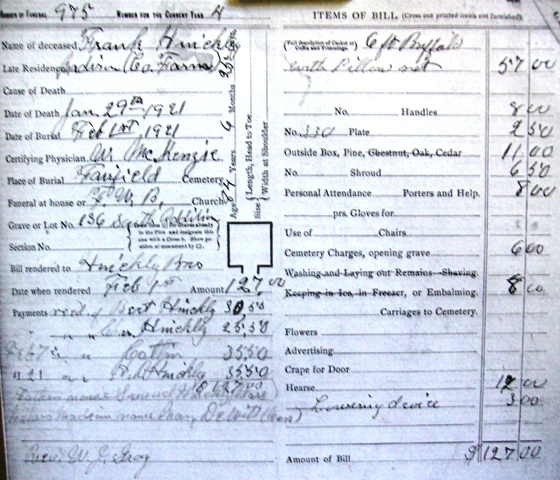 NUMBER OF FUNERAL 975 NUMBER FOR THE CURRENT YEAR 4
Name of deceased Frank Hinckly
Late Residence (Co. Farm)
Cause of Death
Date of Death Jan. 29th 1921
Date of Burial Feb 1st, 1921
Certifying Physician Dr McKenzie
Place of Burial Fairfield Cemetery
Funeral at house or F. W. B. Church
Grave or Lot No. 136 South Addition
Section No.
Bill rendered to Hinckly Bros
Date when rendered Feb 1st Amount 127 00
Payments recd of Bert Hinckly 30,50
" " Hinckly 25,50
Feb 7 " " 35 50
" 21 " " Hinckly 35 50
127.00
Fathers name Samuel
Mothers Maiden name DeWitt
Rev. W. J.
Age 74 Years 6 Months
Size Length, Head to Toe
Width at Shoulder
ITEMS OF BILL (Cross out printed items not furnished)
(Full description of Casket or Coffin and Trimmings) 6 ft Buffalo
with Pillow set 57 00
No. Handles 8 00
No. 330 Plate 2 50
Outside Box, Pine, Chestnut, Oak, Cedar 11 00
No. Shroud 6 50
Personal Attendance Porters and Help. 8 00
prs. Gloves for
Use of Chairs
Cemetery Charges, opening grave 6 00
Washing and Laying out Remains Shaving.
Keeping in Ice, in Freezer, or Embalming. 8 00
Carriages to Cemetery.
Flowers
Advertising
Crape for Door
Hearse 12 00
Lowering device 3 00
Amount of Bill $127 00